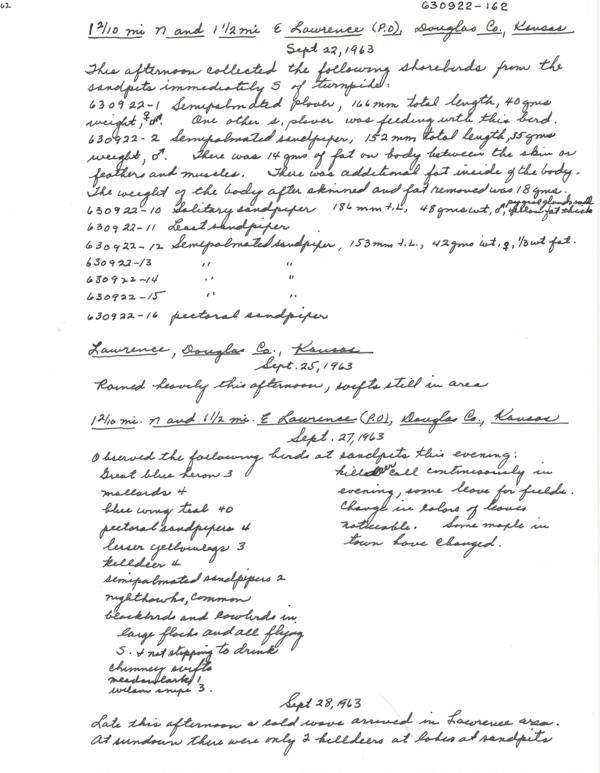 62
630922-162
1 2/10 mi N and 1 1/2 mi E Lawrence (P.O), Douglas Co, Kansas
Sept 22, 1963
This afternoon collected the following shorebirds from the
sandpits immediately S of turnpike:
630922-1 Semipalmated Plover, 166mm total length, 40gms
weight, ♂. One other s. plover was feeding with this bird.
630922-2 Semipalmated sandpiper, 152mm total length, 35gms
weight, ♂. There was 14 gms of fat on body between the skin or
feathers and muscles. There was additional fat inside of the body.
The weight of the body after skinned and fat removed was 18 gms.
630922-10 Solitary sandpiper 186 mm t.L, 48gms wt, ♂, yellow fat thick
630922-11 Least sandpiper
630922-12 Semipalmated sandpiper, 153mm t.L, 42gms wt. ♀, 1/3 wt fat.
630922-13 " "
630922-14 " "
630922-15 " "
630922-16 pectoral sandpiper
Lawrence, Douglas Co., Kansas
Sept. 25, 1963
Rained heavily this afternoon, swifts still in area
1 2/10 mi. N and 1 1/2 mi. E Lawrence (P.O), Douglas Co., Kansas
Sept. 27, 1963
Observed the following birds at sandpits this evening:
Great blue heron 3
mallards 4
blue wing teal 40
pectoral sandpipers 4
lesser yellowlegs 3
killdeer 4
semipalmated sandpipers 2
nighthawks, common
blackbirds and cowbirds in
large flocks and all flying
S. & not stopping to drink
chimney swifts
meadowlark 1
wilson snipe 3.
killdeer call continuously in
evening, some leave for fields.
Change in colors of leaves
noticeable. Some maple in
town have changed.
Sept 28, 1963
Late this afternoon a cold wave arrived in Lawrence area.
At sundown there were only 2 killdeers at lakes at sandpits